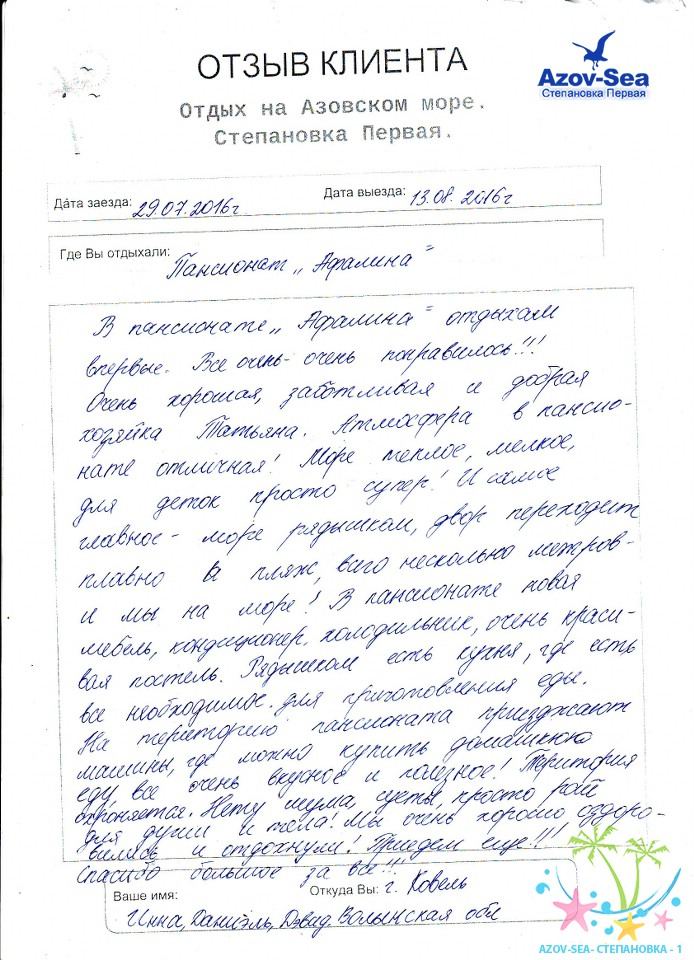 ОТЗЫВ КЛИЕНТА
Azov-Sea
Степановка Первая
Отдых на Азовском море.
Степановка Первая.
Дата заезда: 29.07.2016г Дата выезда: 13.08.2016г
Где Вы отдыхали: Пансионат „Афалина“
В пансионате „Афалина“ отдыхаем
впервые. Все очень-очень понравилось!!!
Очень хорошая, заботливая и добрая
хозяйка Татьяна. Атмосфера в пансио-
нате отличная! Море теплое, мелкое,
для деток просто супер! И самое
главное - море рядышком, двор переходит
плавно в пляж, всего несколько метров -
и мы на море! В пансионате новая
мебель, кондиционер, холодильник, очень краси-
вая постель. Рядышком есть кухня, где есть
все необходимое для приготовления еды.
На територию пансионата приезджают
машины, где можно купить домашнюю
еду, все очень вкусное и полезное! Територия
охроняется. Нету шума, суеты, просто рай
для души и тела! Мы очень хорошо оздоро-
вились и отдохнули! Приедем еще!!!
Спасибо большое за все!!!
Ваше имя: Откуда Вы: г. Ковель
Инна, Даниэль, Дэвид. Волынская обл
AZOV-SEA- СТЕПАНОВКА - 1